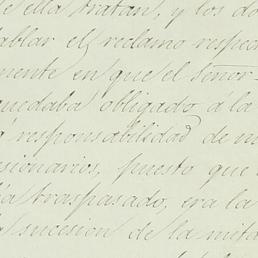 e ella tratan, y los do
ablar el reclamo respec
mente en que el Señor
quedaba obligado á la
á responsabilidad de no
esionarios, puesto que
ía traspasado, era la
la sucesion de la mita